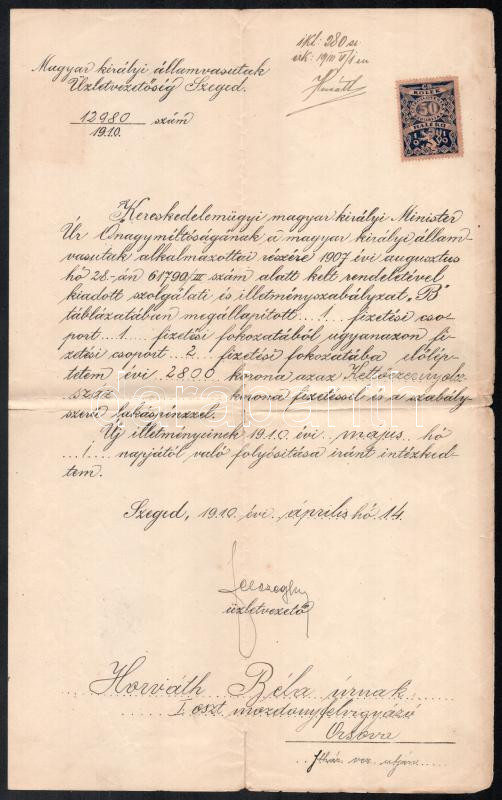 ikt: 280 sz
Magyar királyi államvasutak
Üzletvezetőség Szeged.
12980 szám
1910.
50
HALERŮ
Kereskedelemügyi magyar királyi Minister
Úr Őnagyméltóságának a magyar királyi állam-
vasutak alkalmazottai részére 1907 évi augusztus
hó 28.-án 61790/III szám alatt kelt rendeletével
kiadott szolgálati és illetményszabályzat „B"
táblázatában megállapított ...1... fizetési cso-
port ...1... fizetési fokozatából ugyanazon fi-
zetési csoport ...2... fizetési fokozatába előlép-
tetem évi 2800 korona azaz Kettőezernyolc
száz korona fizetéssel és a szabály-
szerű lakáspénzzel.
Új illetményeinek 1910. évi május hó
1. napjától való folyósítása iránt intézked-
tem.
Szeged, 1910. évi április hó 14.
üzletvezető
Horváth Béla úrnak
I. oszt mozdonyfelvigyázó
Orsova